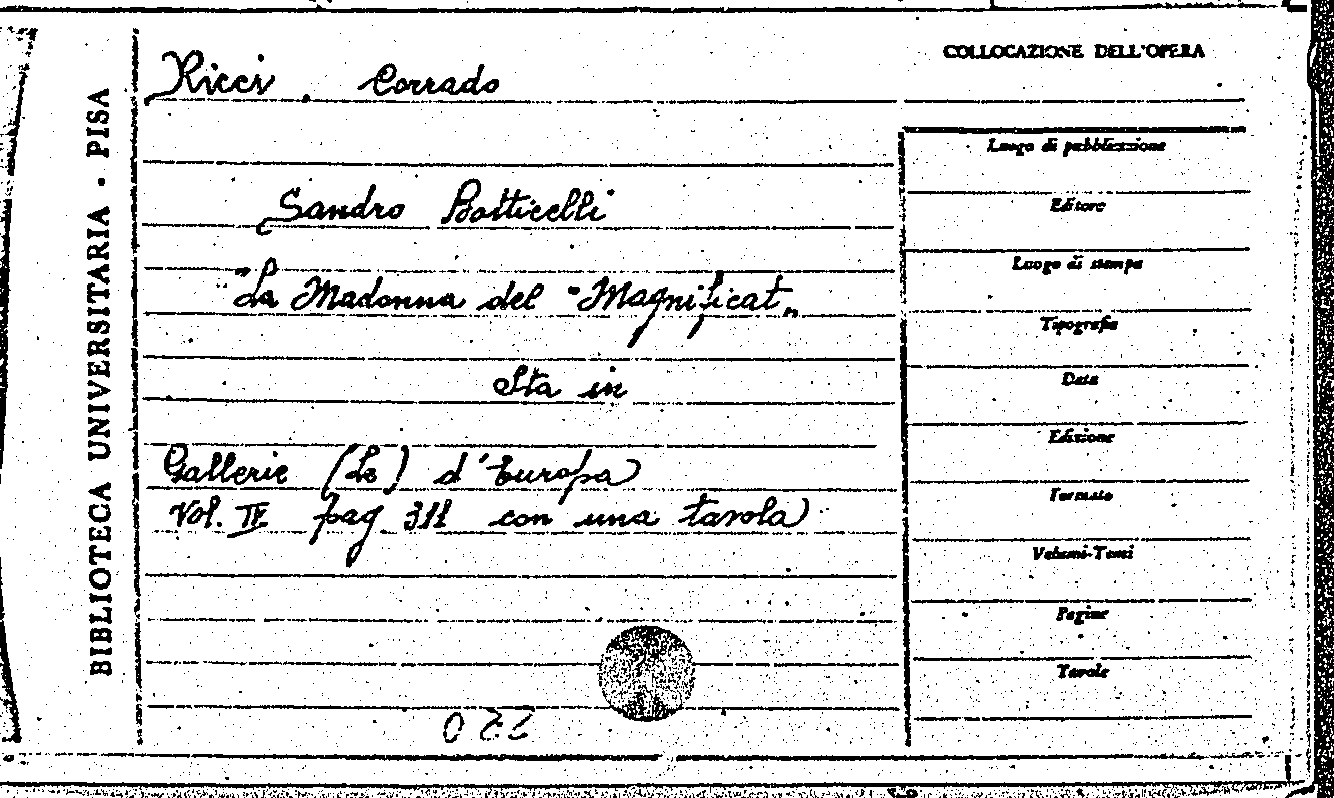 BIBLIOTECA UNIVERSITARIA - PISA
COLLOCAZIONE DELL'OPERA
Ricci, Corrado
Sandro Botticelli
"La Madonna del "Magnificat„
Sta in
Gallerie (Le) d'Europa
Vol. IV pag 311 con una tavola
Luogo di pubblicazione
Editore
Luogo di stampa
Tipografia
Data
Edizione
Formato
Volumi-Tomi
Pagine
Tavole